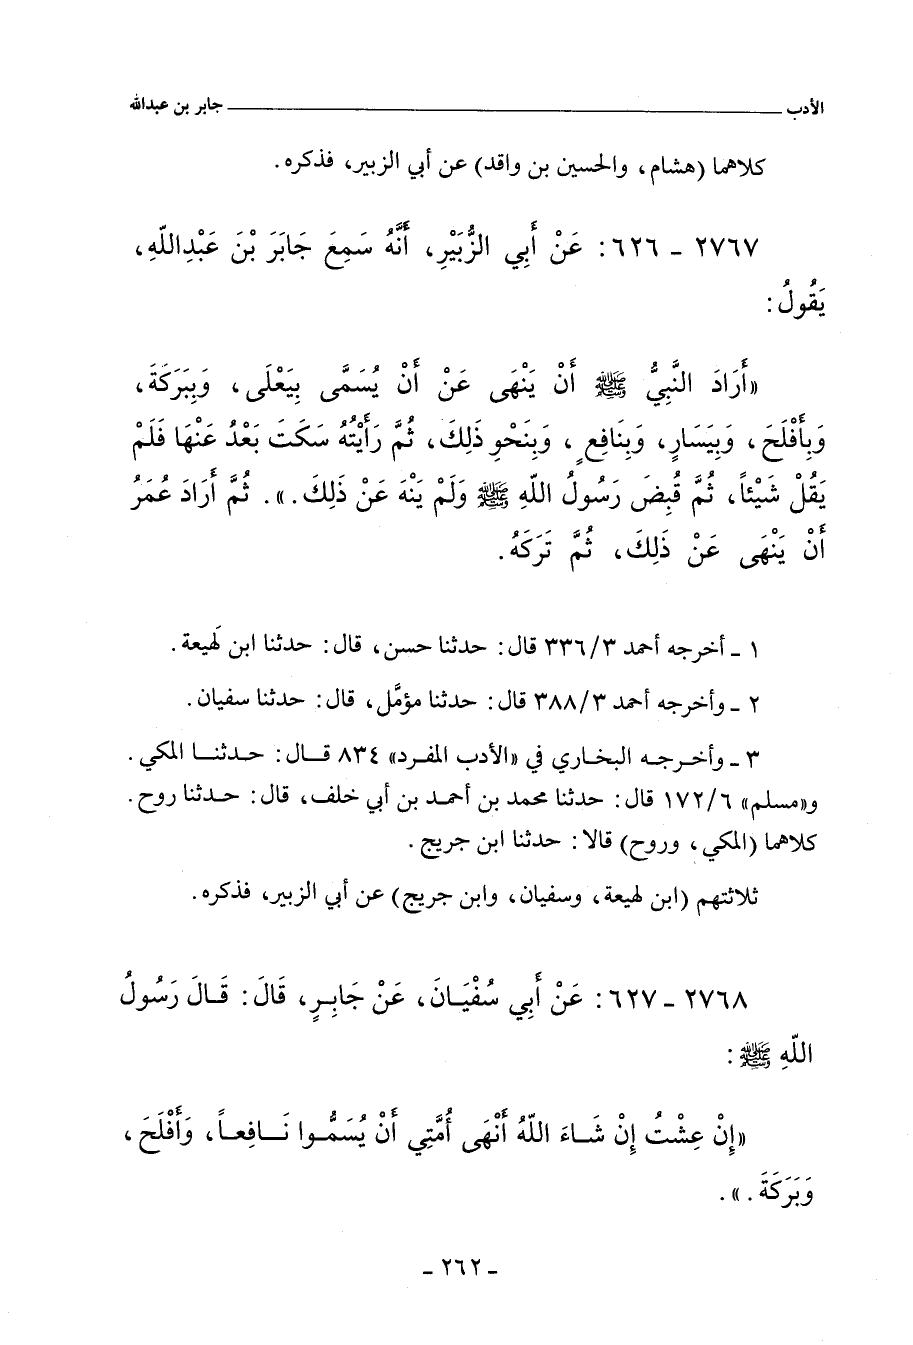 الأدب ــــــــــــــــ جابر بن عبدالله
كلاهما (هشام، والحسين بن واقد) عن أبي الزبير، فذكره.
٢٧٦٧ - ٦٢٦: عَنْ أَبِي الزُّبَيْرِ، أَنَّهُ سَمِعَ جَابَرَ بْنَ عَبْدِاللّهِ،
يَقُولُ:
«أَرَادَ النَّبِيُّ ﷺ أَنْ يَنْهَى عَنْ أَنْ يُسَمَّى بِيَعْلَى، وَبِبَرَكَةَ،
وَبِأَفْلَحَ، وَبِيَسَارٍ، وَبِنَافِعٍ، وَبِنَحْوِ ذَلِكَ، ثُمَّ رَأَيْتُهُ سَكَتَ بَعْدُ عَنْهَا فَلَمْ
يَقُلْ شَيْئاً، ثُمَّ قُبِضَ رَسُولُ اللّهِ ﷺ وَلَمْ يَنْهَ عَنْ ذَلِكَ.». ثُمَّ أَرَادَ عُمَرُ
أَنْ يَنْهَى عَنْ ذَلِكَ، ثُمَّ تَرَكَهُ.
١ - أخرجه أحمد ٣/٣٣٦ قال: حدثنا حسن، قال: حدثنا ابن لَهيعة.
٢ - وأخرجه أحمد ٣/٣٨٨ قال: حدثنا مؤمَّل، قال: حدثنا سفيان.
٣ - وأخرجه البخاري في «الأدب المفرد» ٨٣٤ قال: حدثنا المكي.
و«مسلم» ٦/١٧٢ قال: حدثنا محمد بن أحمد بن أبي خلف، قال: حدثنا روح.
كلاهما (المكي، وروح) قالا: حدثنا ابن جريج.
ثلاثتهم (ابن لهيعة، وسفيان، وابن جريج) عن أبي الزبير، فذكره.
٢٧٦٨ - ٦٢٧: عَنْ أَبِي سُفْيَانَ، عَنْ جَابِرٍ، قَالَ: قَالَ رَسُولُ
اللّهِ ﷺ:
«إِنْ عِشْتُ إِنْ شَاءَ اللّهُ أَنْهَى أُمَّتِي أَنْ يُسَمُّوا نَافِعاً، وَأَفْلَحَ،
وَبَرَكَةَ.».
- ٢٦٢ -